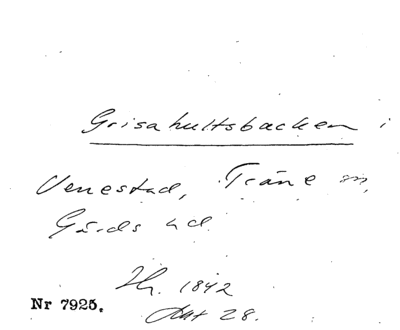 Grisahultsbacken i
Venestad, Träne sn,
Gärds hd.
1842
Akt 28.
Nr 7925.